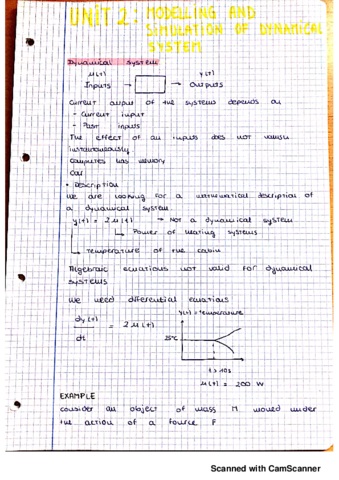 UNIT 2: MODELLING AND
SIMULATION OF DYNAMICAL
SYSTEM
Dynamical system
u(t) y(t)
Inputs → → Outputs
Current output of the systems depends on
- Current input
- Past inputs
The effect of an inputs does not vanish
instantaneously
Computer has memory
Car
• Description
We are looking for a mathematical description of
a dynamical system
y(t) = 2u(t) → Not a dynamical system
↳ Power of heating systems
↳ Temperature of the cabin
Algebraic equations not valid for dynamical
systems
We need diferential equations
y(t) = temperature
dy(t)
dt
= 2u(t)
25ºC
t > 10s
u(t) = 200 W
EXAMPLE
consider an object of mass M moved under
the action of a fource F
Scanned with CamScanner